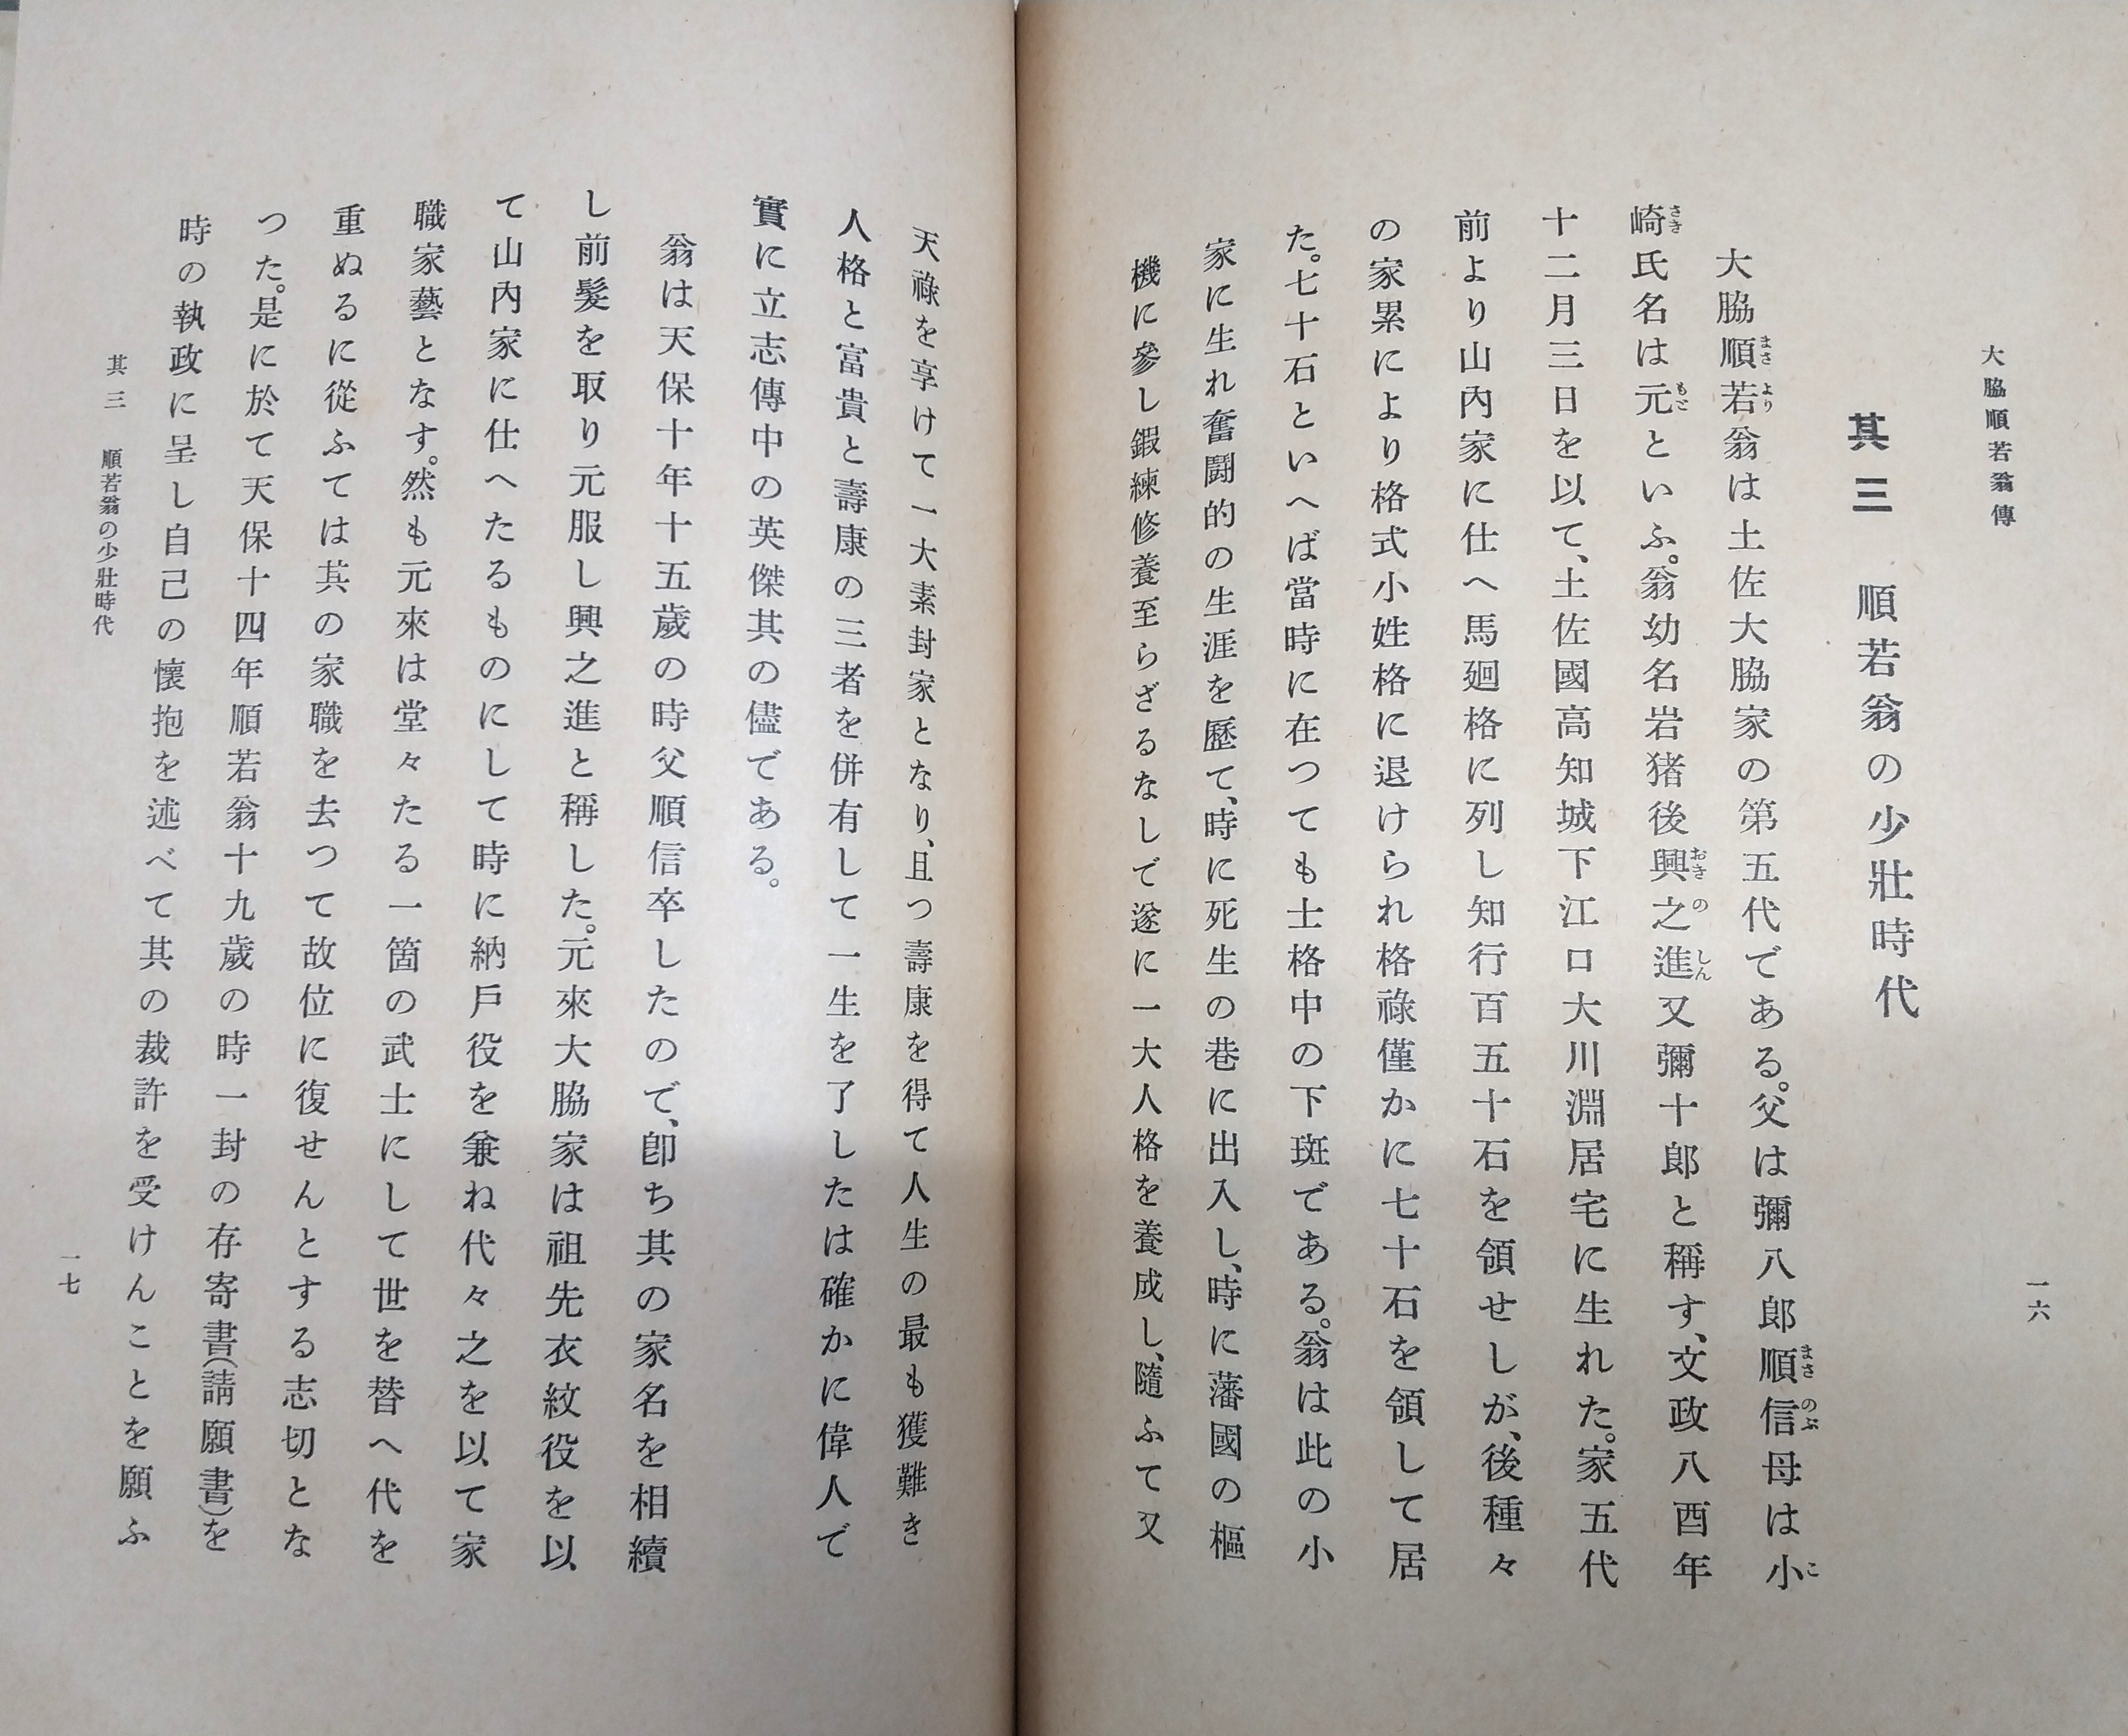 大脇順若翁傳
一六
其三　順若翁の少壯時代
大脇順若翁は土佐大脇家の第五代である。父は彌八郎順信母は小
崎氏名は元といふ。翁幼名岩猪後興之進又彌十郎と稱す、文政八酉年
十二月三日を以て、土佐國高知城下江ノ口大川淵居宅に生れた。家五代
前より山內家に仕へ馬廻格に列し知行百五十石を領せしが、後種々
の家累により格式小姓格に退けられ格祿僅かに七十石を領して居
た。七十石といへば當時に在つても士格中の下斑である。翁は此の小
家に生れ奮鬪的の生涯を歷て、時に死生の巷に出入し、時に藩國の樞
機に參し鍜練修養至らざるなしで遂に一大人格を養成し、隨ふて又
天祿を享けて一大素封家となり、且つ壽康を得て人生の最も獲難き
人格と富貴と壽康の三者を併有して一生を了したは確かに偉人で
實に立志傳中の英傑其の儘である。
翁は天保十年十五歲の時父順信卒したので、卽ち其の家名を相續
し前髮を取り元服し興之進と稱した。元來大脇家は祖先衣紋役を以
て山內家に仕へたるものにして時に納戶役を兼ね代々之を以て家
職家藝となす。然も元來は堂々たる一箇の武士にして世を替へ代を
重ぬるに從ふては其の家職を去つて故位に復せんとする志切とな
つた。是に於て天保十四年順若翁十九歲の時一封の存寄書(請願書)を
時の執政に呈し自己の懷抱を述べて其の裁許を受けんことを願ふ
其三　順若翁の少壯時代
一七